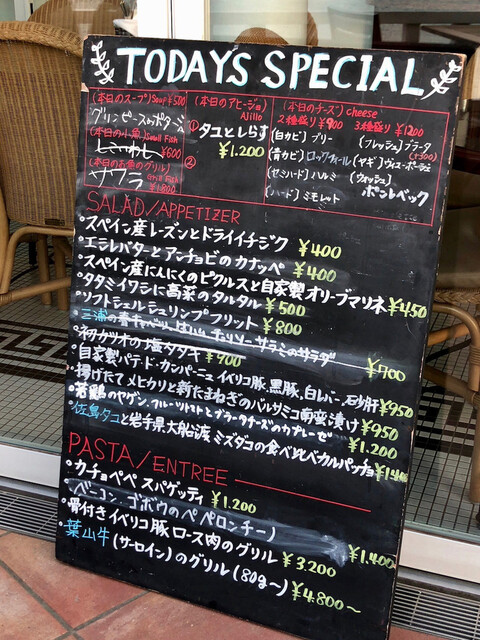 TODAYS SPECIAL
(本日のスープ)Soup ¥500
グリンピースのポタージュ
(本日の小魚)Small Fish
¥600
(本日のお魚のグリル)
Grill Fish
サワラ ¥1.800
(本日のアヒージョ)
Ajillo
① タコとしらす
¥1.200
②
(本日のチーズ) cheese
2種盛り¥900 3種盛り ¥1200
(白カビ) ブリー (フレッシュ) ブラータ
(+300)
(青カビ) ロックヴィール (ヤギ)
(セミハード) ハルミ (ウォッシュ)
(ハード) ミモレット ポントレベック
SALAD/APPETIZER
・スペイン産レーズンとドライイチジク ¥400
・エシレバターとアンチョビのカナッペ ¥400
・スペイン産にんにくのピクルスと自家製オリーブマリネ ¥450
・タタミイワシに高菜のタルタル ¥500
・ソフトシェルシュリンプフリット ¥800
・三浦の春キャベツ サラミのサラダ ¥700
・初ガツオの塩タタキ ¥900
・自家製パテ・ド・カンパーニュ イベリコ豚、黒豚、白レバー、砂肝 ¥950
・揚げたてメヒカリと新たまねぎのバルサミコ南蛮漬け ¥950
・若鶏のヤゲン、フルーツトマトとブラータチーズのカプレーゼ ¥1.200
・佐島タコと岩手県大船渡 ミズダコの食べ比べカルパッチョ
PASTA/ENTREE
・カチョペペ スパゲッティ ¥1.200
・ベーコン、ゴボウのペペロンチーノ ¥1.400
・骨付きイベリコ豚ロース肉のグリル ¥3.200
・葉山牛(サーロイン)のグリル(80g〜) ¥4.800〜